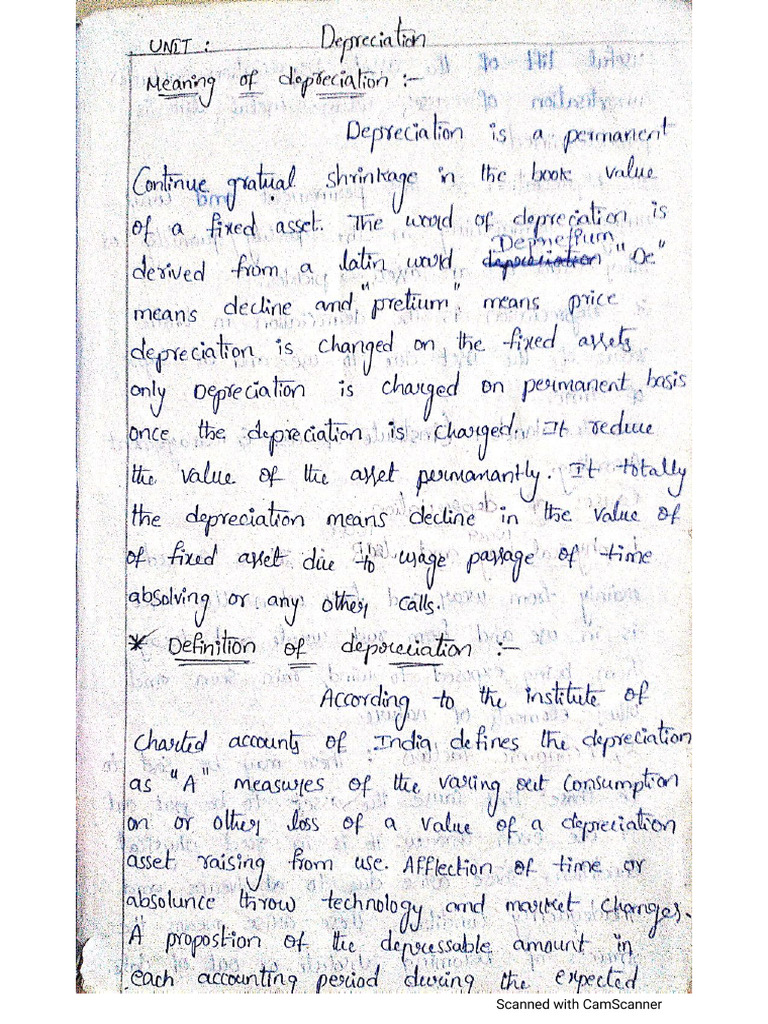 UNIT : Depreciation
Meaning of depreciation :-
Depreciation is a permanent
Continue gratual shrinkage in the book value
of a fixed asset. The word of depreciation is
Depnefium
derived from a latin word depreciation "De"
means decline and "pretium" means price
depreciation is changed on the fixed assets
only Depreciation is charged on permanent basis
once the depreciation is charged. It reduce
the value of the asset permanantly. It totally
the depreciation means decline in the value of
of fixed asset due to usage passage of time
absolving or any other calls.
* Definition of depreciation :-
According to the institute of
Charted accounts of India defines the depreciation
as "A" measures of the varing out Consumption
on or other loss of a value of a depreciation
asset raising from use. Afflection of time or
absolunce throw technology and market changes.
A propostion of the depressable amount in
each accounting period during the expected
Scanned with CamScanner